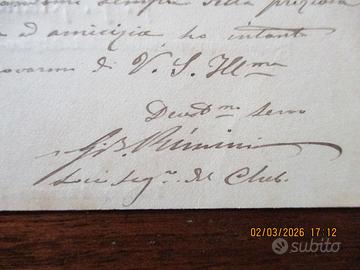 sempre della preziosa
ed amicizia ho intanto
di V. S. Ill.ma
Devot.mo servo
Seg.o del Club.
02/03/2026 17:12
subito